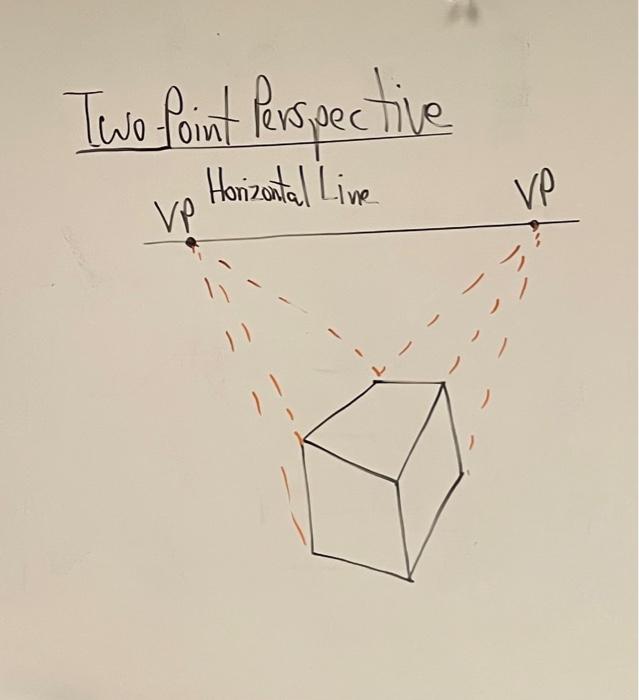 Two-Point Perspective
Horizontal Line
VP
VP